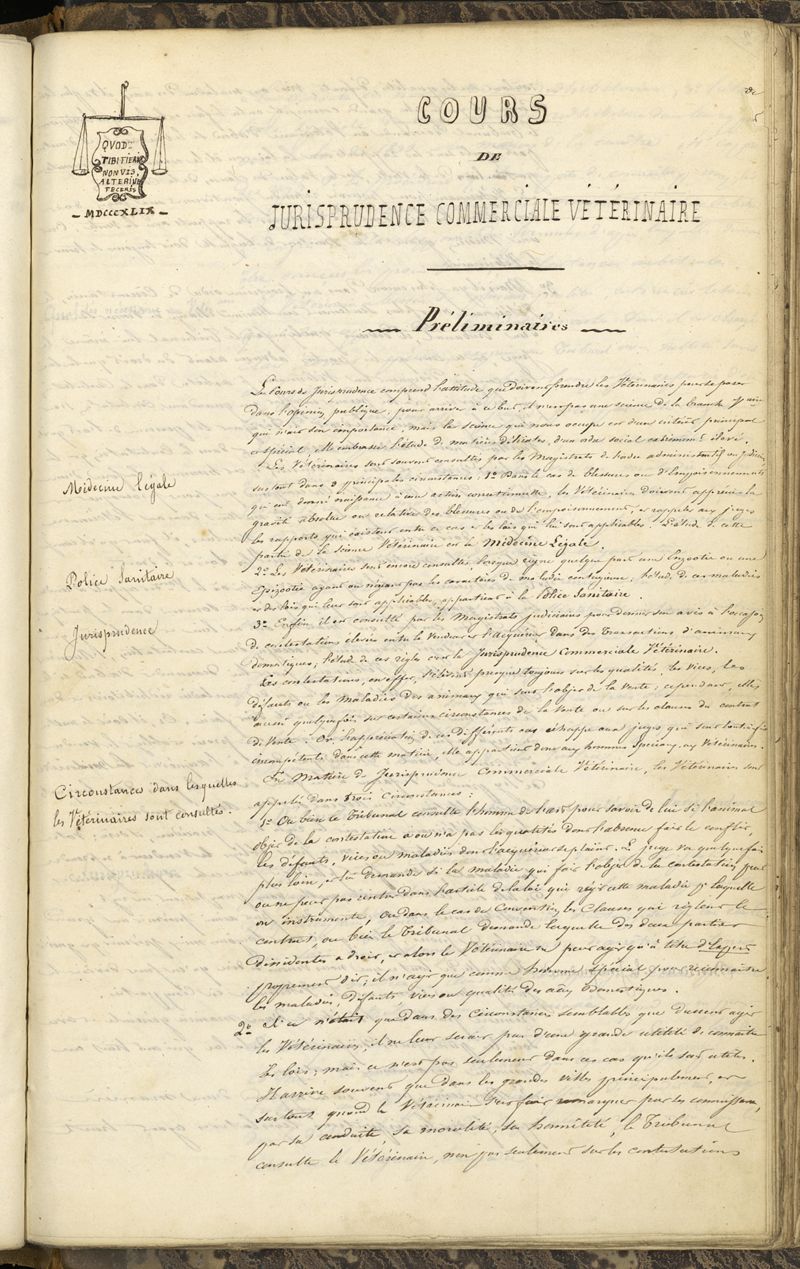 QUOD
TIBI FIERI
NON VIS,
ALTERI NE
FECERIS
MDCCCXLIX
COURS
DE
JURISPRUDENCE COMMERCIALE VÉTÉRINAIRE
Préliminaires
Le Cours de Jurisprudence comprend l'attitude que doivent prendre les Vétérinaires pour se poser
dans l'opinion publique, pour arriver à ce but, il n'est pas une science de la branche
qui n'ait son importance, mais la science qui nous occupe est d'un intérêt principal
et spécial, elle embrasse l'étude de matières délicates, d'un ordre social extrêmement élevé.
Les Vétérinaires sont souvent consultés par les Magistrats de l'ordre administratif ou judiciaire
surtout dans 3 principales circonstances : 1º Dans le cas de blessures ou d'empoisonnements
qui ont donné naissance à une action correctionnelle, les Vétérinaires doivent apprécier la
gravité absolue ou relative des blessures ou de l'empoisonnement, et rappeler aux juges
les rapports qui existent entre ce cas et les lois qui lui sont applicables. L'étude de cette
partie de la science Vétérinaire est la Médecine Légale.
Médecine légale
2º Les Vétérinaires sont encore consultés, lorsque règne quelque part une Enzootie ou une
Epizootie ayant ou n'ayant pas les caractères de maladie contagieuse, l'étude de ces maladies
et des lois qui leur sont applicables, appartient à la Police Sanitaire.
Police Sanitaire
3º Enfin, il est consulté par les Magistrats judiciaires pour donner son avis à l'occasion
de contestations élevées entre le Vendeur et l'Acquéreur dans des Transactions d'animaux
domestiques; l'étude de ces règles c'est la Jurisprudence Commerciale Vétérinaire.
Jurisprudence
Les contestations, en effet, s'élèvent presque toujours sur les qualités, les vices, les
défauts ou les maladies des animaux qui sont l'objet de la vente; cependant, elles
aussi quelquefois sur certaines circonstances de la vente ou sur les clauses du contrat
de vente. Or, l'appréciation de ces différents cas échappe aux juges qui sont tout à fait
incompétents dans cette matière, elle appartient donc aux hommes spéciaux, aux Vétérinaires.
En Matière de Jurisprudence Commerciale Vétérinaire, les Vétérinaires sont
appelés dans trois circonstances :
Circonstances dans lesquelles
les Vétérinaires sont consultés.
1º Ou bien le Tribunal consulte l'homme de l'art pour savoir de lui si l'animal
objet de la contestation a ou n'a pas les qualités dont l'absence fait le conflit,
les défauts, vices ou maladies dont l'acquéreur se plaint. Le juge va quelquefois
plus loin, et lui demande si la maladie qui fait l'objet de la contestation, peut
ou ne peut pas rentrer dans l'article de la loi qui régit cette maladie pr laquelle
on instrumente, ou dans le cas de Convention, les Clauses qui règlent le
contrat, ou bien le Tribunal demande lequel des deux parties
dissidentes a droit, et alors le Vétérinaire ne peut agir qu'à titre d'Expert
proprement dit, il n'agit que comme homme spécial pour reconnaître
les maladies, défauts, vices ou qualité des Domestiques.
2º Si ce n'était que dans des circonstances semblables que dussent agir
les Vétérinaires, il ne leur serait pas d'une grande utilité de connaître
les lois; mais ce n'est pas seulement dans ces cas qu'ils sont utiles.
Il arrive souvent que dans les grandes villes principalement, et
surtout quand le Vétérinaire s'est fait remarquer par ses connaissances,
par sa conduite, sa moralité, son honnêteté, le Tribunal
consulte le Vétérinaire, non pas seulement sur les contestations